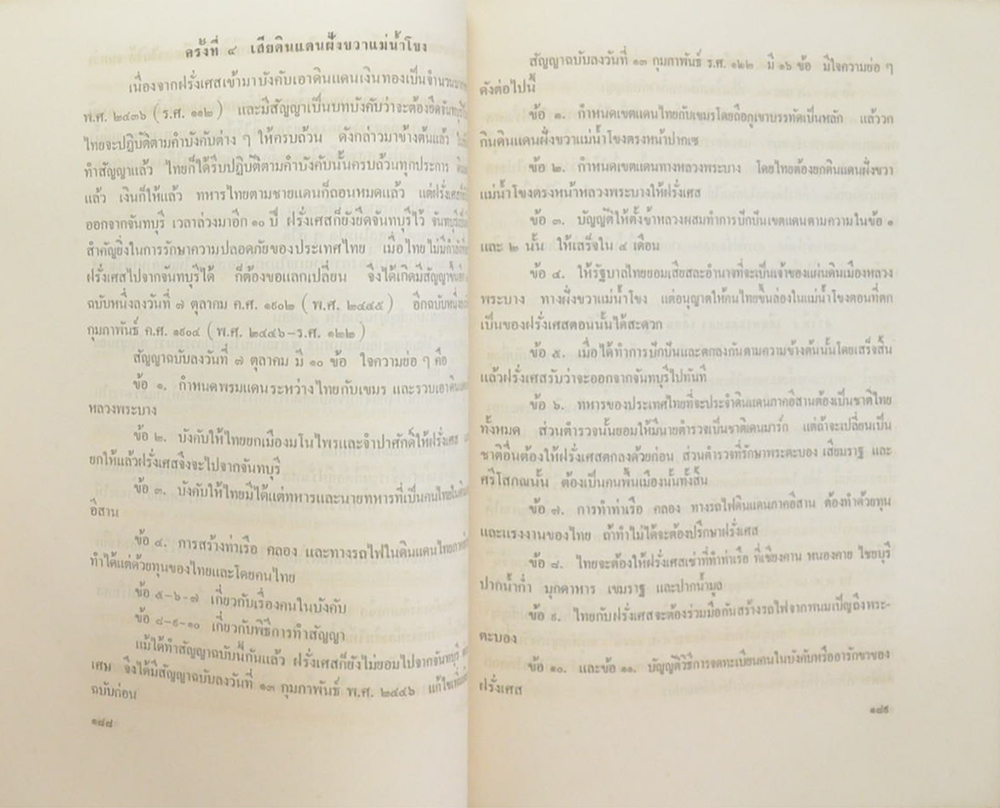 ครั้งที่ ๔ เสียดินแดนฝั่งขวาแม่น้ำโขง
เนื่องจากฝรั่งเศสเข้ามาบังคับเอาดินแดนเงินทองเป็นจำนวนมาก
พ.ศ. ๒๔๓๖ (ร.ศ. ๑๑๒) และมีสัญญาเป็นบทบังคับว่าจะต้องยึดจันทบุรีไว้
ไทยจะปฏิบัติตามคำบังคับต่าง ๆ ให้ครบถ้วน ดังกล่าวมาข้างต้นแล้ว
ทำสัญญาแล้ว ไทยก็ได้รีบปฏิบัติตามคำบังคับนั้นครบถ้วนทุกประการ
แล้ว เงินก็ให้แล้ว ทหารไทยตามชายแดนก็ถอนหมดแล้ว แต่ฝรั่งเศส
ออกจากจันทบุรี เวลาล่วงมาอีก ๑๐ ปี ฝรั่งเศสก็ยังยึดจันทบุรีไว้ จันทบุรี
สำคัญยิ่งในการรักษาความปลอดภัยของประเทศไทย เมื่อไทยไม่มีกำลัง
ฝรั่งเศสไปจากจันทบุรีได้ ก็ต้องขอแลกเปลี่ยน จึงได้เกิดมีสัญญาขึ้น
ฉบับหนึ่งลงวันที่ ๗ ตุลาคม ค.ศ. ๑๙๐๒ (พ.ศ. ๒๔๔๕) อีกฉบับหนึ่ง
กุมภาพันธ์ ค.ศ. ๑๙๐๔ (พ.ศ. ๒๔๔๖-ร.ศ. ๑๒๒)
สัญญาฉบับลงวันที่ ๗ ตุลาคม มี ๑๐ ข้อ ใจความย่อ ๆ คือ
ข้อ ๑. กำหนดพรมแดนระหว่างไทยกับเขมร และรวบเอาดินแดน
หลวงพระบาง
ข้อ ๒. บังคับให้ไทยยกเมืองมโนไพรและจำปาศักดิ์ให้ฝรั่งเศส
ยกให้แล้วฝรั่งเศสจึงจะไปจากจันทบุรี
ข้อ ๓. บังคับให้ไทยมีได้แต่ทหารและนายทหารที่เป็นคนไทยในดินแดน
อีสาน
ข้อ ๔. การสร้างท่าเรือ คลอง และทางรถไฟในดินแดนไทยภาค
ทำได้แต่ด้วยทุนของไทยและโดยคนไทย
ข้อ ๕-๖-๗ เกี่ยวกับเรื่องคนในบังคับ
ข้อ ๘-๙-๑๐ เกี่ยวกับพิธีการทำสัญญา
แม้ได้ทำสัญญาฉบับนี้กันแล้ว ฝรั่งเศสก็ยังไม่ยอมไปจากจันทบุรี
เศษ จึงได้มีสัญญาฉบับลงวันที่ ๑๓ กุมภาพันธ์ พ.ศ. ๒๔๔๖ แก้ไขเพิ่มเติม
ฉบับก่อน
๑๘๘
สัญญาฉบับลงวันที่ ๑๓ กุมภาพันธ์ ร.ศ. ๑๒๒ มี ๑๖ ข้อ มีใจความย่อ ๆ
ดังต่อไปนี้
ข้อ ๑. กำหนดเขตแดนไทยกับเขมรโดยถือภูเขาบรรทัดเป็นหลัก แล้ววก
กินดินแดนฝั่งขวาแม่น้ำโขงตรงหน้าปากเซ
ข้อ ๒. กำหนดเขตแดนทางหลวงพระบาง โดยไทยต้องยกดินแดนฝั่งขวา
แม่น้ำโขงตรงหน้าหลวงพระบางให้ฝรั่งเศส
ข้อ ๓. บัญญัติให้ตั้งข้าหลวงผสมทำการปักปันเขตแดนตามความในข้อ ๑
และ ๒ นั้น ให้เสร็จใน ๔ เดือน
ข้อ ๔. ให้รัฐบาลไทยยอมเสียสละอำนาจที่จะเป็นเจ้าของแผ่นดินเมืองหลวง
พระบาง ทางฝั่งขวาแม่น้ำโขง แต่อนุญาตให้คนไทยขึ้นล่องในแม่น้ำโขงตอนที่ตก
เป็นของฝรั่งเศสตอนนั้นได้สะดวก
ข้อ ๕. เมื่อได้ทำการปักปันและตกลงกันตามความข้างต้นนั้นโดยเสร็จสิ้น
แล้วฝรั่งเศสรับว่าจะออกจากจันทบุรีไปทันที
ข้อ ๖. ทหารของประเทศไทยที่จะประจำดินแดนภาคอีสานต้องเป็นชาติไทย
ทั้งหมด ส่วนตำรวจนั้นยอมให้มีนายตำรวจเป็นชาติเดนมาร์ก แต่ถ้าจะเปลี่ยนเป็น
ชาติอื่นต้องให้ฝรั่งเศสตกลงด้วยก่อน ส่วนตำรวจที่รักษาพระตะบอง เสียมราฐ และ
ศรีโสภณนั้น ต้องเป็นคนพื้นเมืองนั้นทั้งสิ้น
ข้อ ๗. การทำท่าเรือ คลอง ทางรถไฟดินแดนภาคอีสาน ต้องทำด้วยทุน
และแรงงานของไทย ถ้าทำไม่ได้จะต้องปรึกษาฝรั่งเศส
ข้อ ๘. ไทยจะต้องให้ฝรั่งเศสเช่าที่ทำท่าเรือ ที่เชียงคาน หนองคาย ไชยบุรี
ปากน้ำก่ำ มุกดาหาร เขมราฐ และปากน้ำมูล
ข้อ ๙. ไทยกับฝรั่งเศสจะต้องร่วมมือกันสร้างรถไฟจากพนมเป็ญถึงพระ-
ตะบอง
ข้อ ๑๐. และข้อ ๑๑. บัญญัติวิธีการจดทะเบียนคนในบังคับหรืออารักขาของ
ฝรั่งเศส
๑๘๙